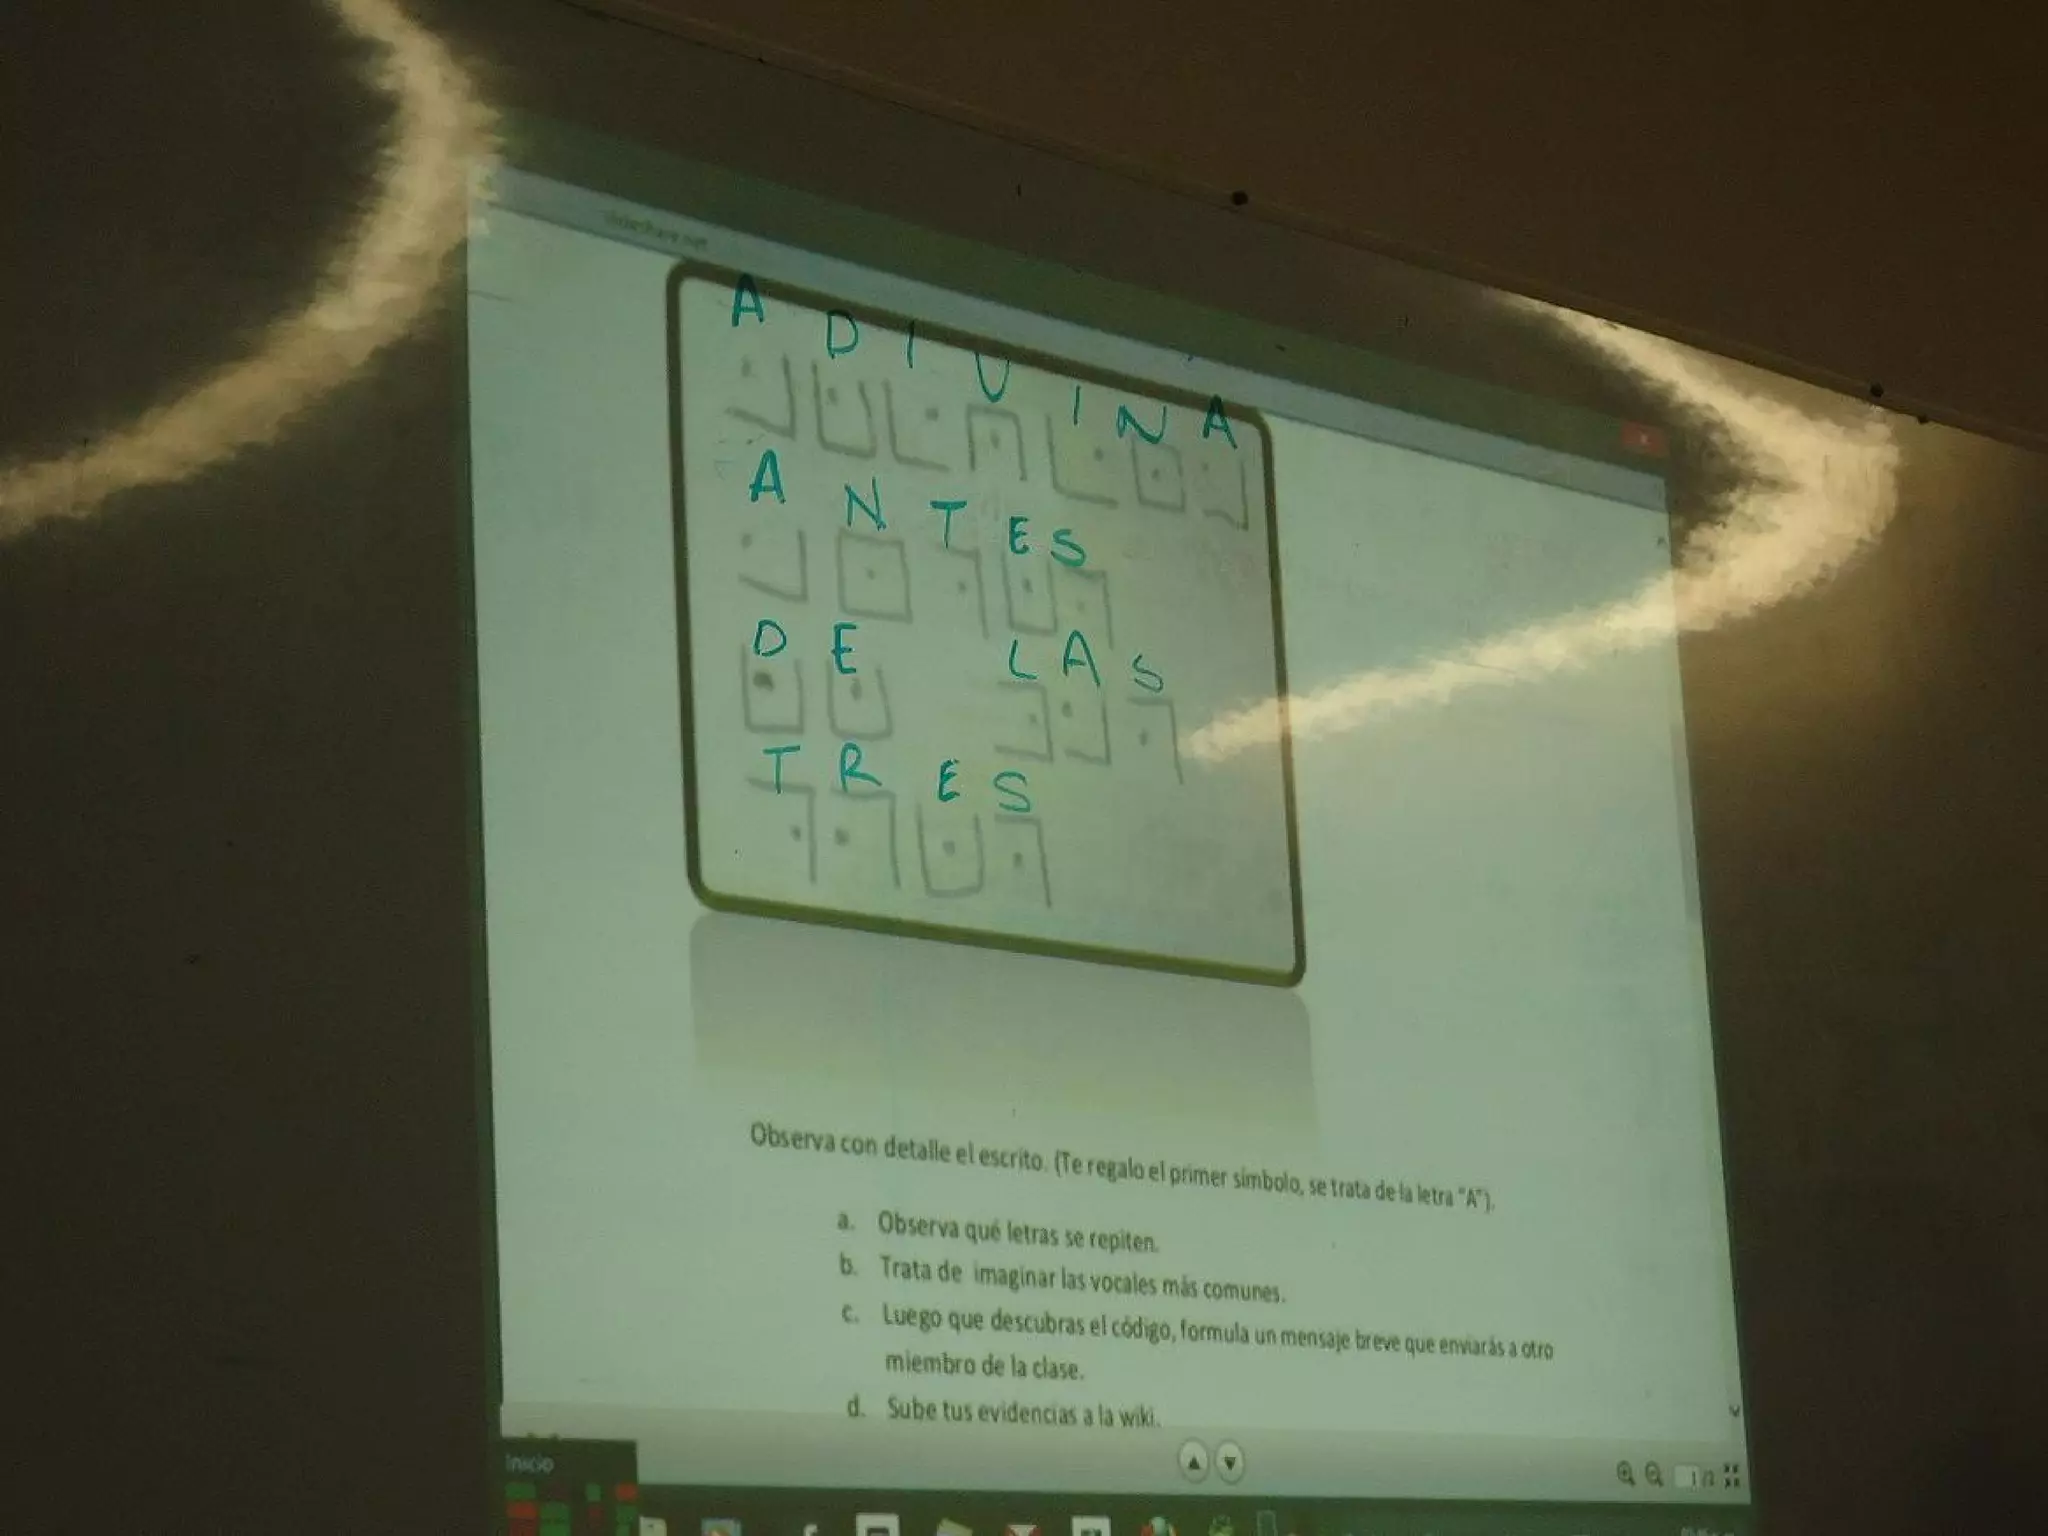 slideshare.net
A D I V I N A
A N T E S
D E L A S
T R E S
Observa con detalle el escrito. (Te regalo el primer símbolo, se trata de la letra "A").
a. Observa qué letras se repiten.
b. Trata de imaginar las vocales más comunes.
c. Luego que descubras el código, formula un mensaje breve que enviarás a otro
miembro de la clase.
d. Sube tus evidencias a la wiki.
Inicio